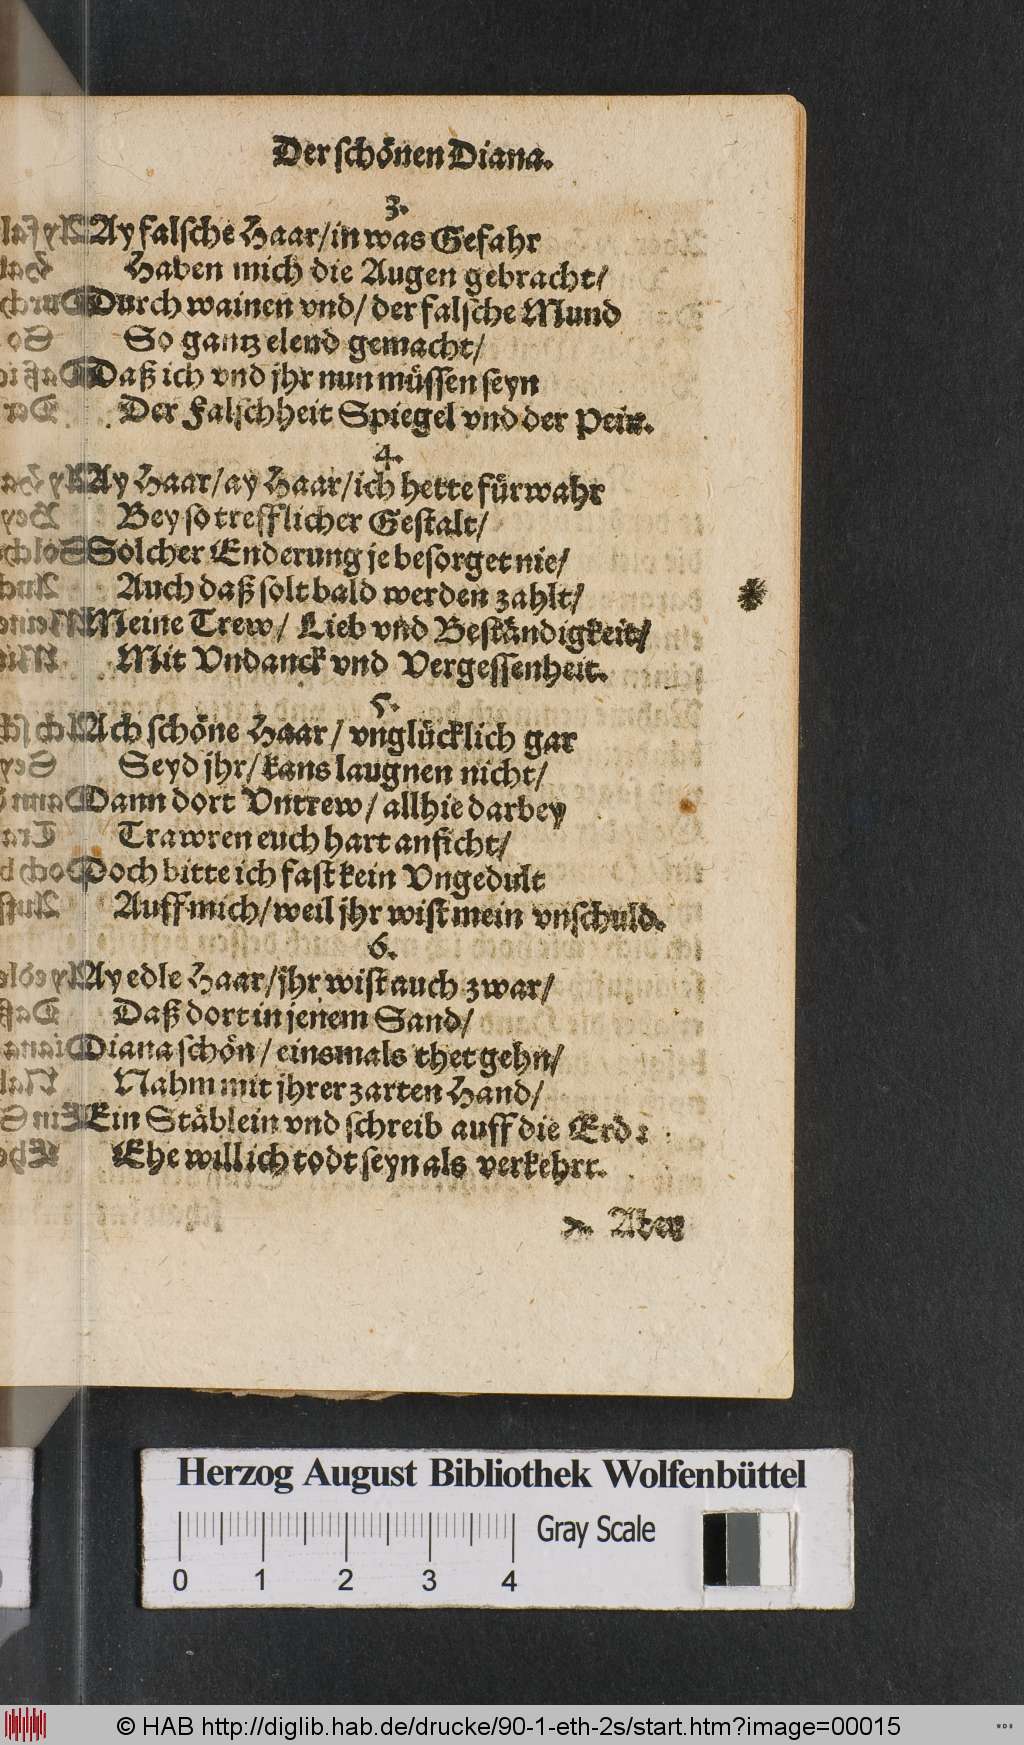 Der schönen Diana.
3.
Ay falsche Haar/ in was Gefahr
Haben mich die Augen gebracht/
Durch wainen vnd/ der falsche Mund
So gantz elend gemacht/
Daß ich vnd jhr nun müssen seyn
Der Falschheit Spiegel vnd der Pein.
4.
Ay Haar/ ay Haar/ ich hette fürwahr
Bey so trefflicher Gestalt/
Solcher Enderung je besorget nie/
Auch daß solt bald werden zahlt/
Meine Trew/ Lieb vnd Beständigkeit/
Mit Vndanck vnd Vergessenheit.
5.
Ach schöne Haar/ vnglücklich gar
Seyd jhr/ kans laugnen nicht/
Dann dort Vntrew/ allhie darbey
Trawren euch hart anficht/
Doch bitte ich fast kein Vngedult
Auff mich/ weil jhr wist mein vnschuld.
6.
Ay edle Haar/ jhr wist auch zwar/
Daß dort in jenem Sand/
Diana schön/ einsmals thet gehn/
Nahm mit jhrer zarten Hand/
Ein Stäblein vnd schreib auff die Erd:
Ehe will ich todt seyn als verkehrt.
Aber
Herzog August Bibliothek Wolfenbüttel
Gray Scale
0 1 2 3 4
© HAB http://diglib.hab.de/drucke/90-1-eth-2s/start.htm?image=00015